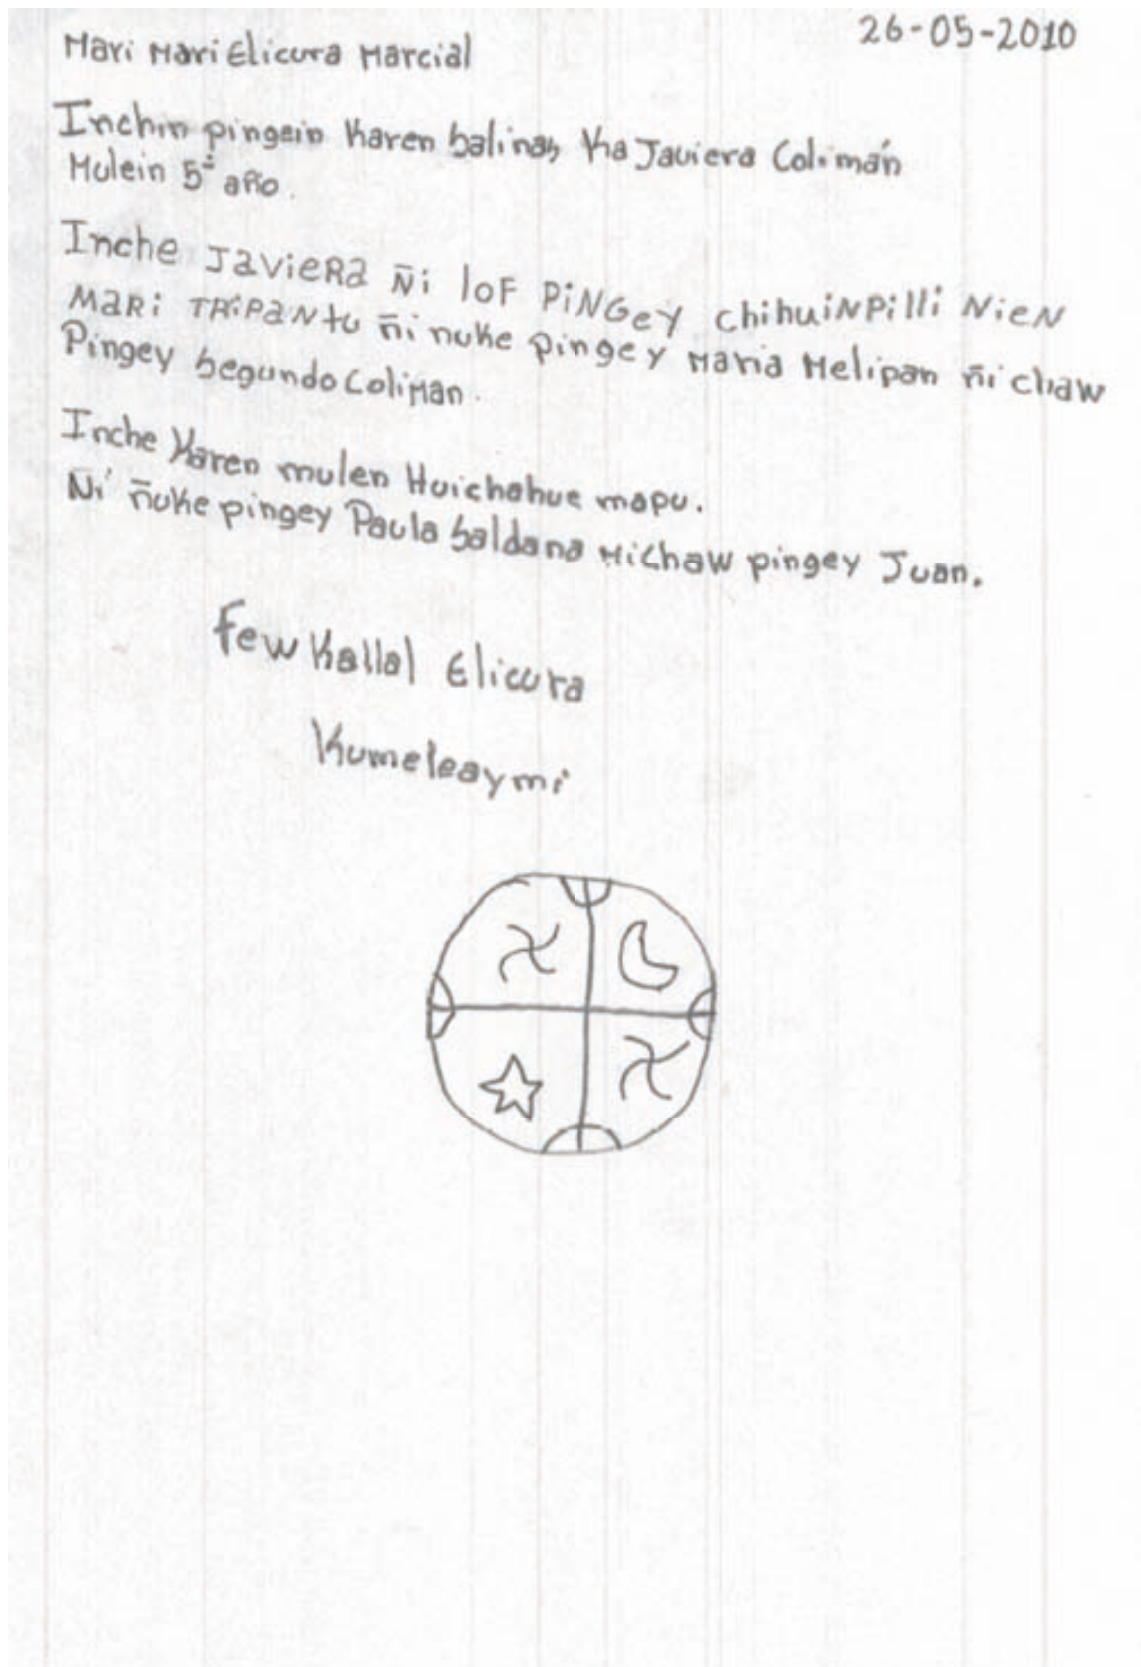 26-05-2010
Mari Mari Elicura Marcial
Inchin pingein Karen Salinas Ka Javiera Colimán
Mulein 5º año.
Inche Javiera Ñi lof Pingey chihuinpilli Nien
Mari Tripantu ñi nuke pingey Maria Melipan ñi chaw
Pingey Segundo Coliman.
Inche Karen mulen Huichahue mapu.
Ñi ñuke pingey Paula Saldana Michaw pingey Juan.
Few Kallal Elicura
Kumeleaymi